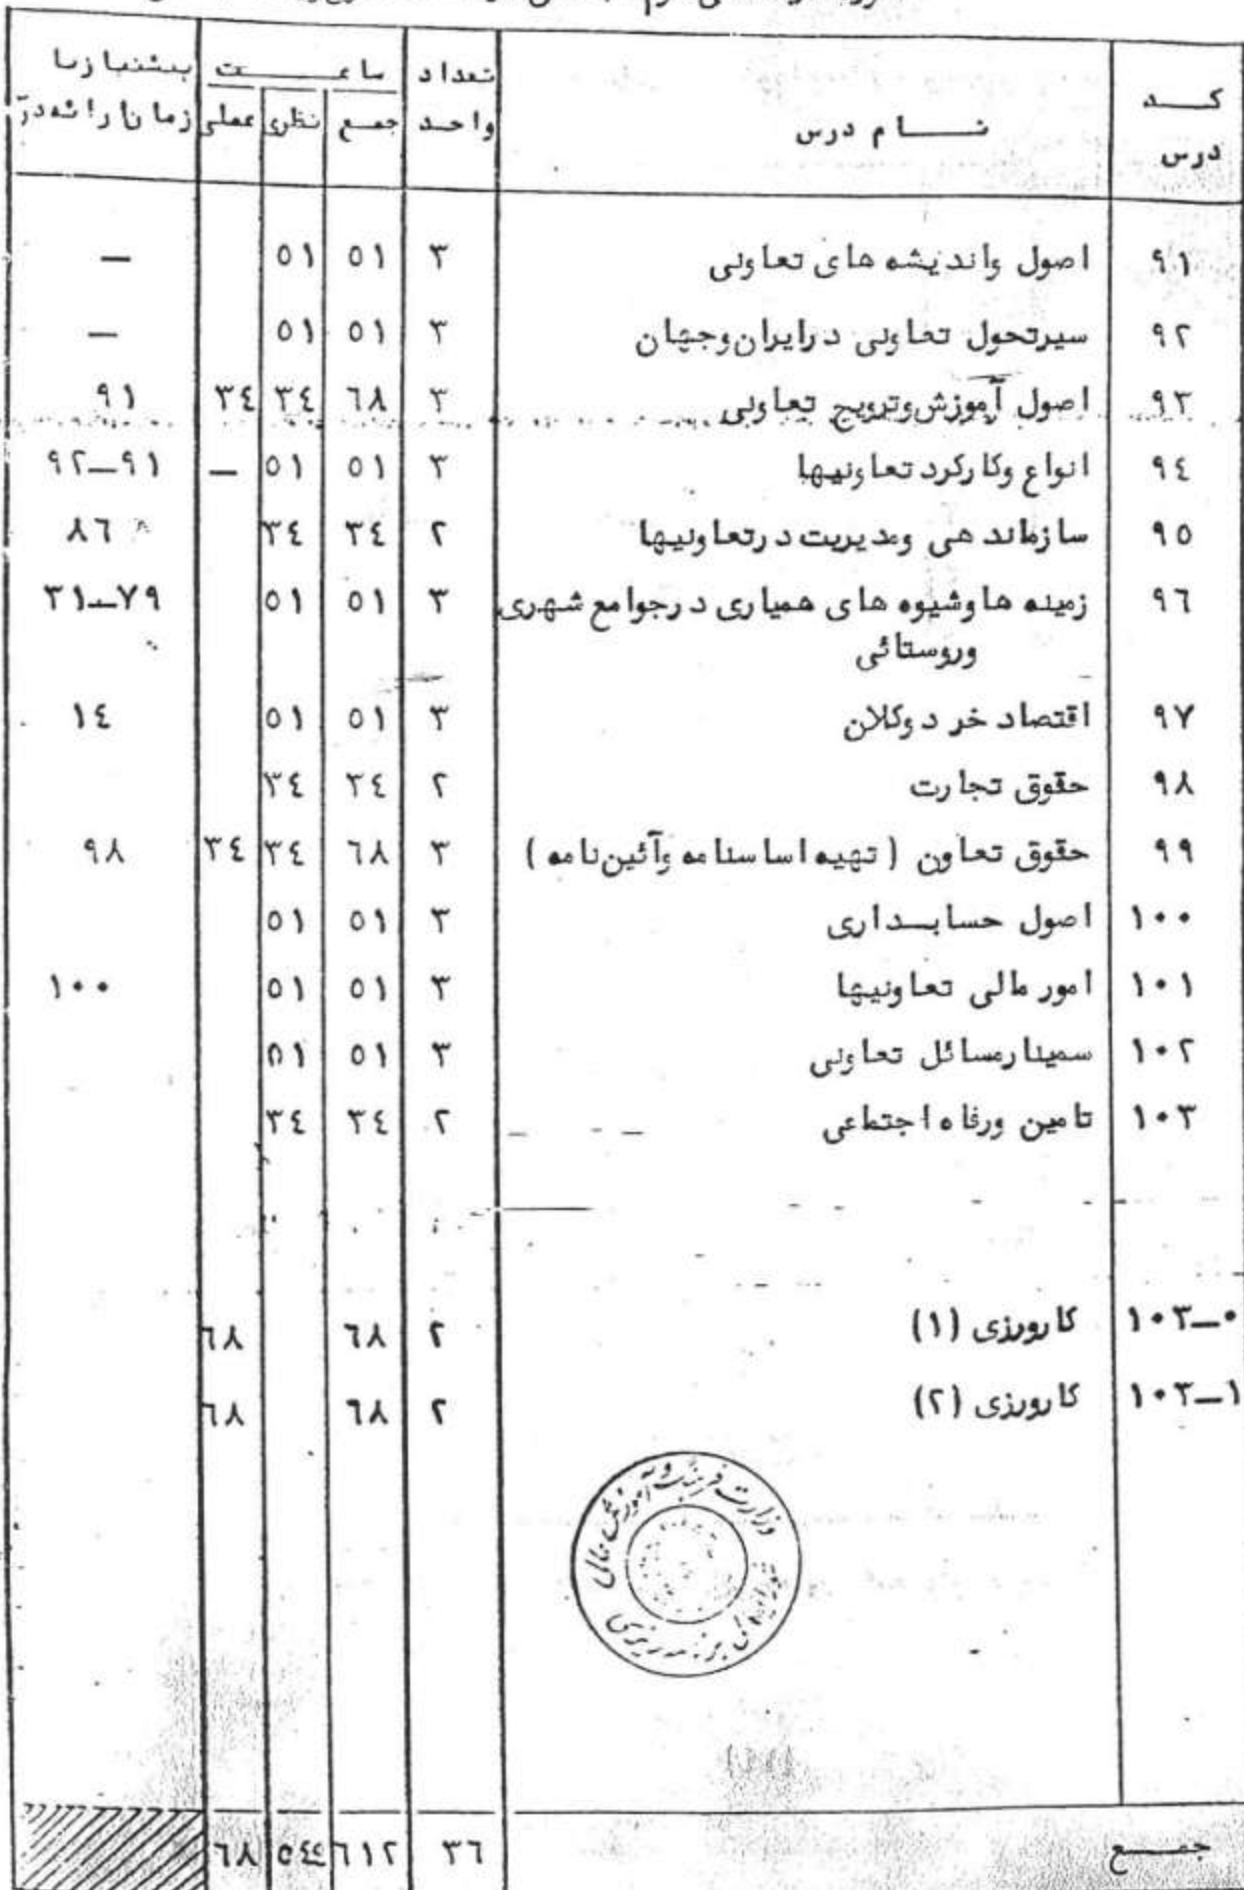 کد درس | نام درس | تعداد واحد | ساعت: جمع | نظری | عملی | پیشنیاز یا زمان ارائه درس
۹۱ | اصول واندیشه های تعاونی | ۳ | ۵۱ | ۵۱ | | —
۹۲ | سیرتحول تعاونی درایران وجهان | ۳ | ۵۱ | ۵۱ | | —
۹۳ | اصول آموزش وترویج تعاونی | ۳ | ۶۸ | ۳۴ | ۳۴ | ۹۱
۹۴ | انواع وکارکرد تعاونیها | ۳ | ۵۱ | ۵۱ | — | ۹۱—۹۲
۹۵ | سازماندهی ومدیریت درتعاونیها | ۲ | ۳۴ | ۳۴ | | ۸۶
۹۶ | زمینه هاوشیوه های همیاری درجوامع شهری | ۳ | ۵۱ | ۵۱ | | ۷۹—۳۱
وروستائی
۹۷ | اقتصاد خردوکلان | ۳ | ۵۱ | ۵۱ | | ۱۴
۹۸ | حقوق تجارت | ۲ | ۳۴ | ۳۴
۹۹ | حقوق تعاون (تهیه اساسنامه وآئین نامه) | ۳ | ۶۸ | ۳۴ | ۳۴ | ۹۸
۱۰۰ | اصول حسابداری | ۳ | ۵۱ | ۵۱
۱۰۱ | امور مالی تعاونیها | ۳ | ۵۱ | ۵۱ | | ۱۰۰
۱۰۲ | سمینارمسائل تعاونی | ۳ | ۵۱ | ۵۱
۱۰۳ | تامین ورفاه اجتماعی | ۲ | ۳۴ | ۳۴
۱۰۳—۰ | کارورزی (۱) | ۲ | ۶۸ | | ۶۸
۱۰۳—۱ | کارورزی (۲) | ۲ | ۶۸ | | ۶۸
وزارت فرهنگ و آموزش عالی
شورایعالی برنامه ریزی
جمع | ۳۶ | ۶۱۲ | ۵۴۴ | ۶۸